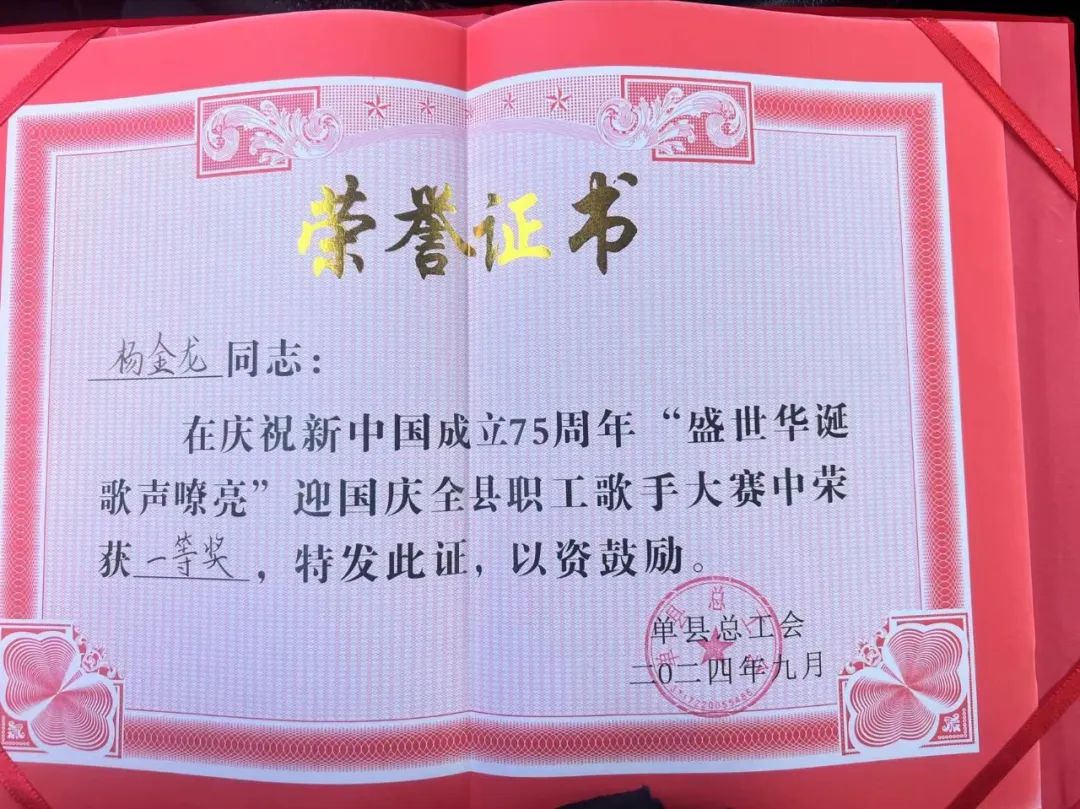 荣誉证书
杨金龙同志：
在庆祝新中国成立75周年“盛世华诞
歌声嘹亮”迎国庆全县职工歌手大赛中荣
获一等奖，特发此证，以资鼓励。
单县总工会
二〇二四年九月
单县总工会